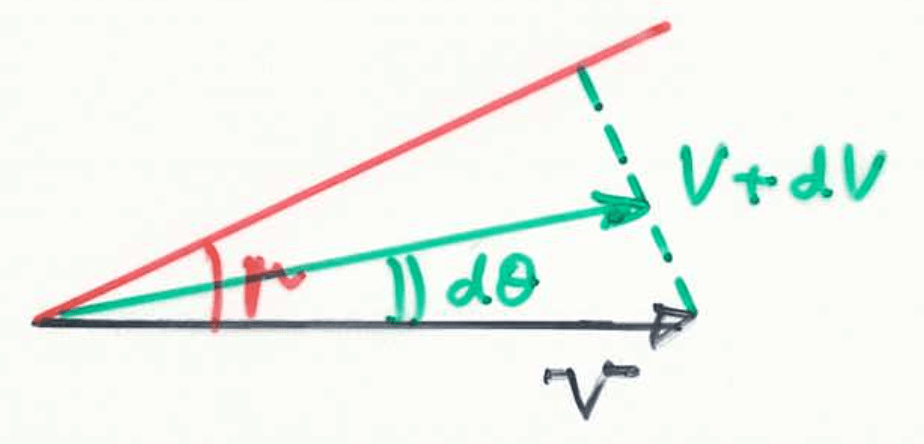 V + dV
μ
dθ
V